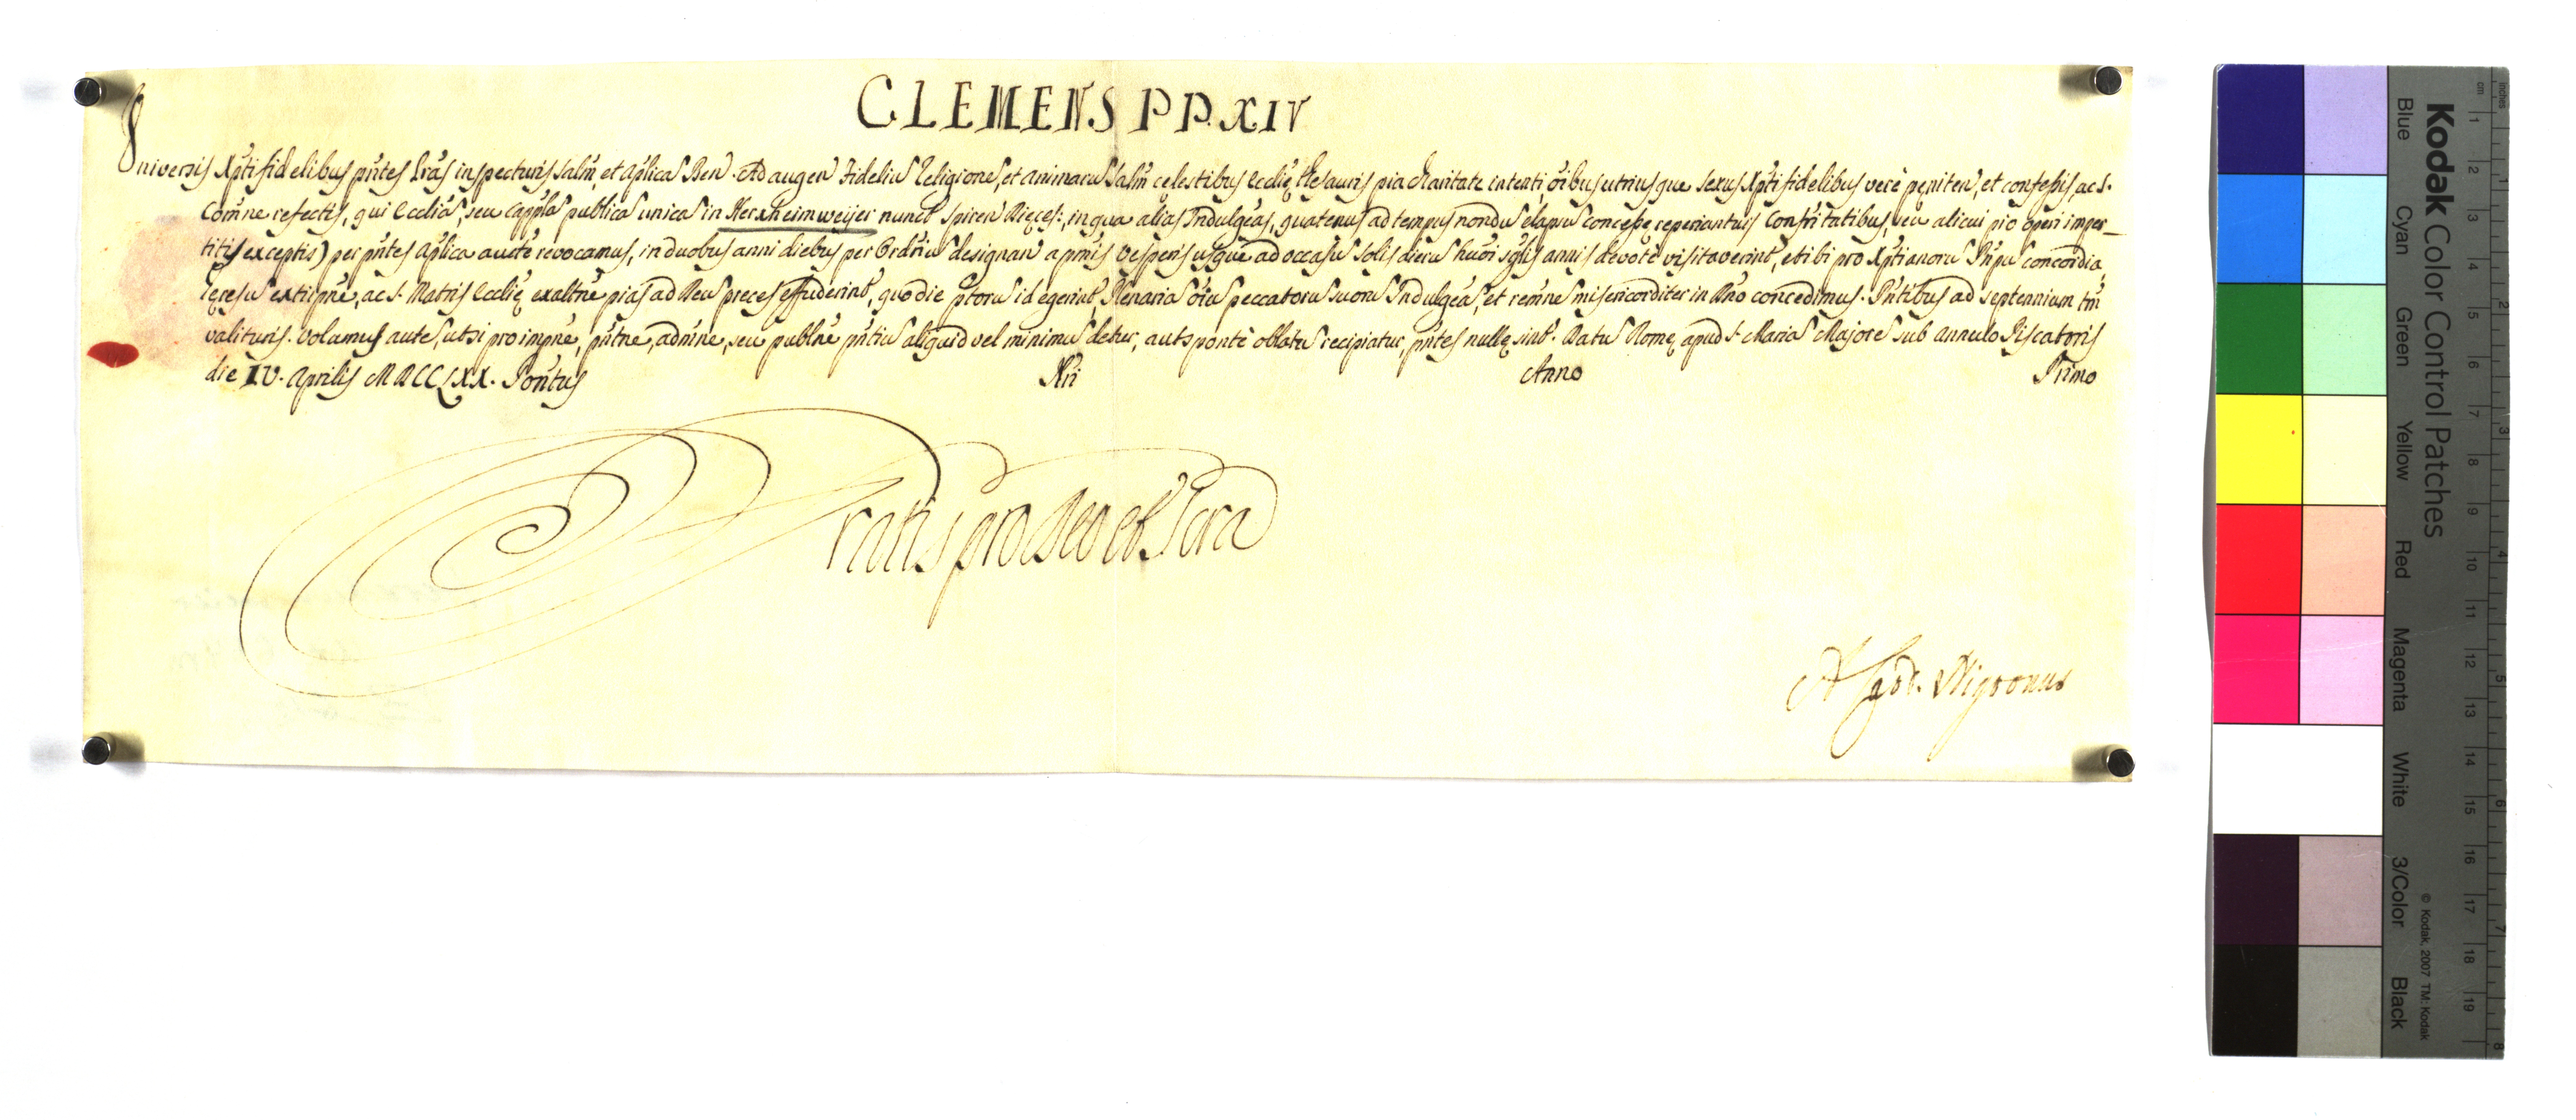 CLEMENS PP. XIV
Universis Xpti fidelibus pntes lras inspecturis salm, et aplica Ben. Ad augen Fideliu Religione, et animaru salm celestibus Ecclie thesauris pia charitate intenti, oibus utriusque sexus Xpti fidelibus vere peniten, et confessis, ac S.
Comne refectis, qui Ecclia, seu Cappla publica unica in Herxheimweijer nunct Spiren Dieces:, in qua alias Indulgeas, quatenus ad tempus nondu elapsu concesse reperiantur, Confritatibus, seu alicui pio operi imper_
titis exceptis) per pntes aplica aucte revocamus, in duobus anni diebus per Ordriu designan a primis Vesperis usque ad occasu Solis dieru huoi sglis annis devote visitaverint, et ibi pro Xptianoru Pnpu concordia,
heresu extirpne, ac S. Matris Ecclie exaltne pias ad Deu preces effuderint, quo die ptoru id egerint, Plenaria oiu peccatoru suoru Indulgea, et remne misericorditer in Dno concedimus. Pntibus ad septennium tm
valituris. Volumus aute, ut si pro impne, pntne, admne, seu publne pntiu aliquid vel minimu detur, aut sponte oblatu recipiatur, pntes nulle sint. Datu Rome apud S. Maria Majore sub annulo Piscatoris
die IV. Aprilis MDCCLXX. Pontus Nri Anno Primo
Gratis pro Deo et Scra
A Card. Nigronus
Kodak Color Control Patches
Blue Cyan Green Yellow Red Magenta White 3/Color Black
© Kodak, 2007 TM: Kodak
inches 1 2 3 4 5 6 7 8
cm 1 2 3 4 5 6 7 8 9 10 11 12 13 14 15 16 17 18 19